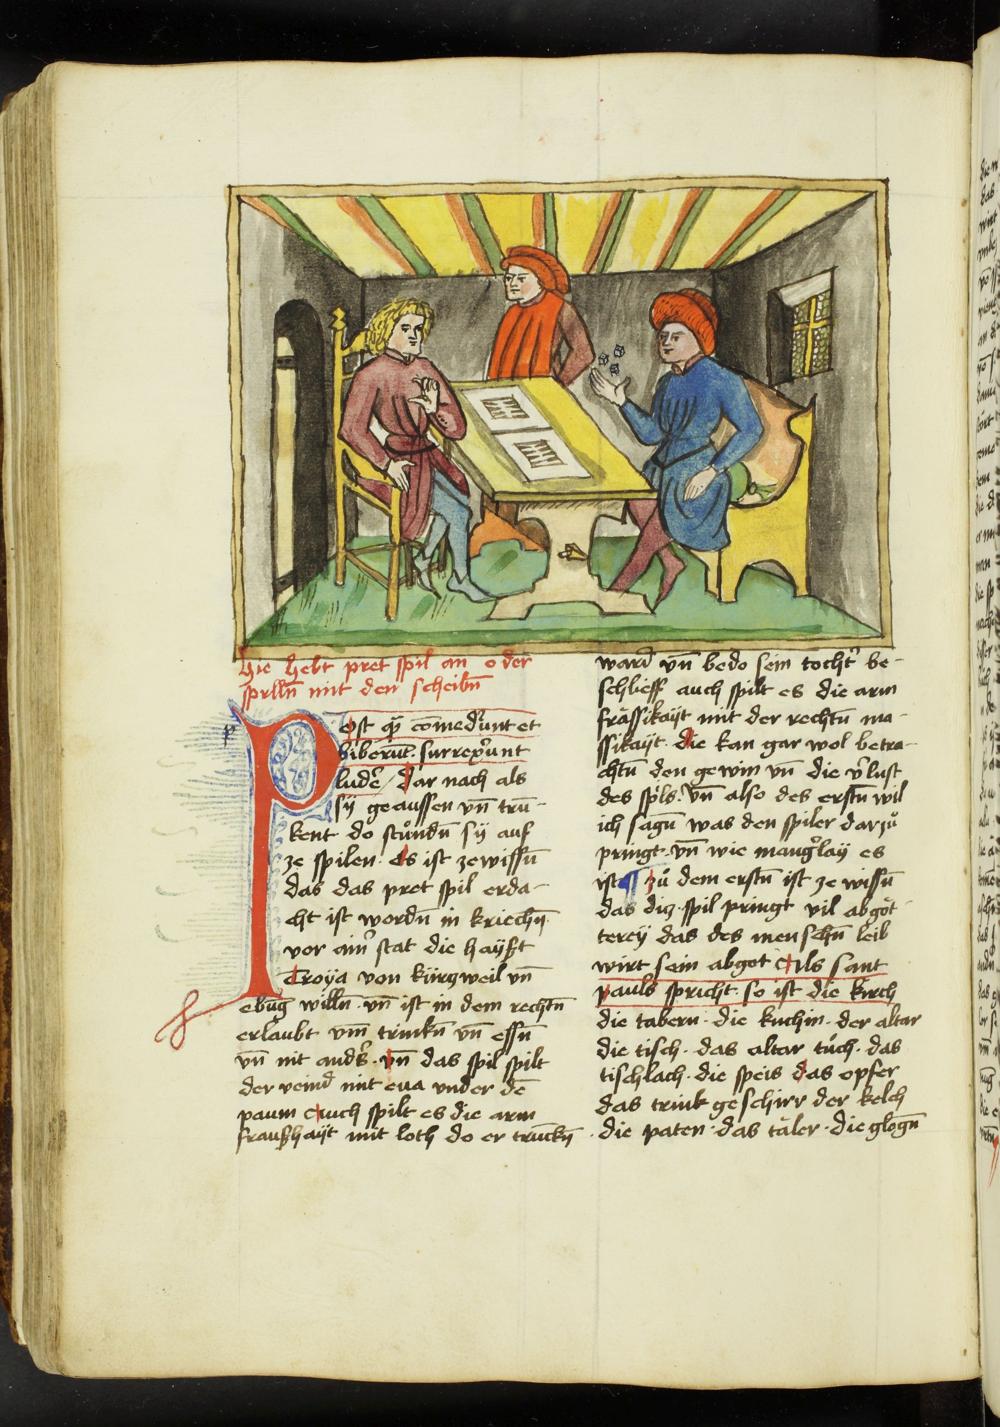 Hie hebt pret spil an oder
sprlln̄ mit den scheibn̄
Post qz̄ comedr̄unt et
biberūt. surrexr̄unt
luder̄ / Dar nach als
sÿ geaussen vn̄ trū-
kent do stůndn̄ sÿ auf
ze spilen. es ist ze wissn̄
das das pret spil erda-
cht ist wordn̄ in kriechn̄
vor ainr̄ stat die haÿßt
Troÿa von kürczweil vn̄
ebūg willn̄. vn̄ ist in dem rechtn̄
erlaubt vm̄ trinkn̄ vn̄ essn̄
vn̄ nit andrs̄. vn̄ das spil spilt
der veind mit eua vnder dē
paum Auch spilt es die arm
fraußhaÿt mit loth do er trūckn̄
ward vn̄ bedo sein tochtr̄ be-
schlieff auch spilt es die arm
frässikaÿt mit der rechtn̄ ma-
ssikaÿt. Die kan gar wol betra-
chtn̄ den gewin vn̄ die vr̄lust
des spils. Vn̄ also des erstn̄ wil
ich sagn̄ was den spiler darzů
pringt. vn̄ wie mangr̄laÿ es
ist zů dem erstn̄ ist ze wissn̄
das diz spil pringt vil abgöt-
tereÿ das des menschn̄ leib
wirt sein abgot Als sant
pauls spricht. so ist die kirch
die tabern. die kuchin. der altar
die tisch. das altar tůch. das
tischlach. die speis das opfer
das trink geschirr der kelch
. die paten. das täler. die glogn̄